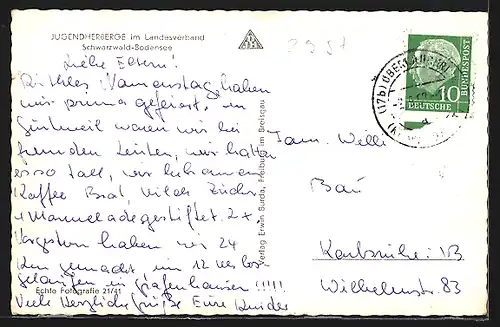 JUGENDHERBERGE im Landesverband
Schwarzwald-Bodensee
2951
Liebe Eltern!
Namenstag haben
wir prima gefeiert, in
waren wir bei
fremden Leuten, wir hatten
es so toll, wir bekamen
Kaffee Brot, Milch Zucker
+ Marmelade gestiftet 2x
Vorgestern haben wir 24
Km gemacht um 12 Uhr los
gelaufen in Grafenhausen !!!!!
Viele Herzliche Grüße Eure Kinder
Echte Fotografie 21/41
Verlag Erwin Burda, Freiburg im Breisgau
Fam. Willi
Bau
Karlsruhe /B
Wilhelmstr. 83
10
DEUTSCHE
BUNDESPOST
(17b)